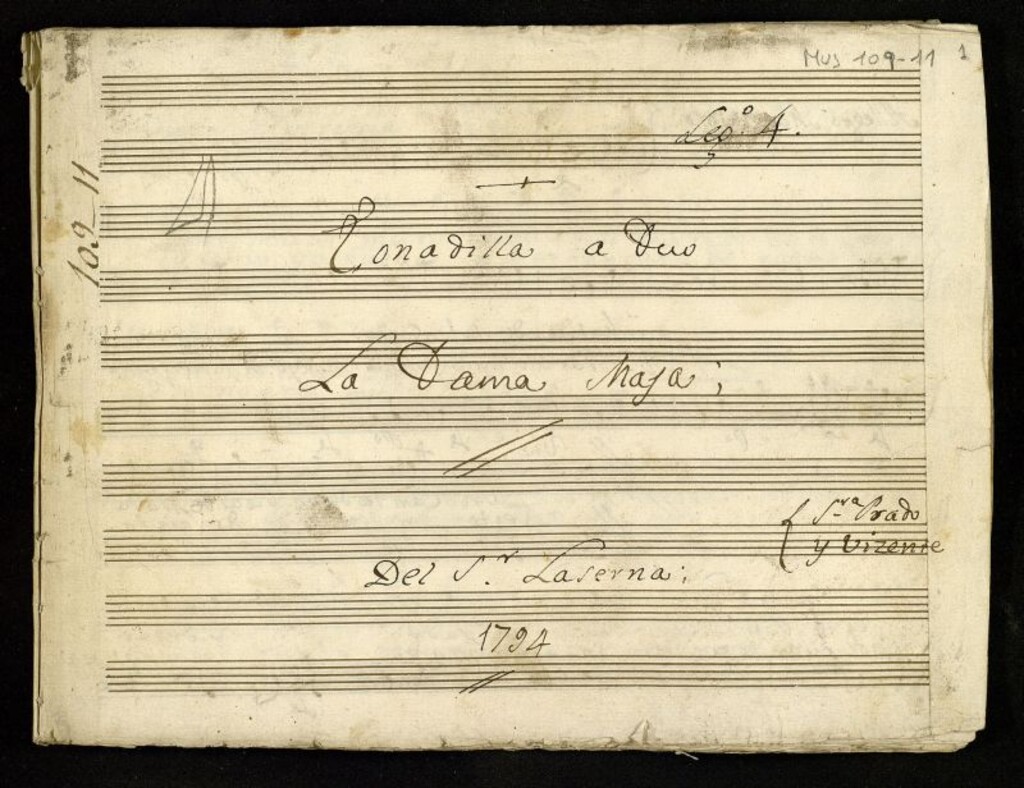 Mus 109-11 1
Leg.º 4.
109-11
Tonadilla a Duo
La Dama Maja;
S.ra Prado
y Vizente
Del S.r Laserna;
1794